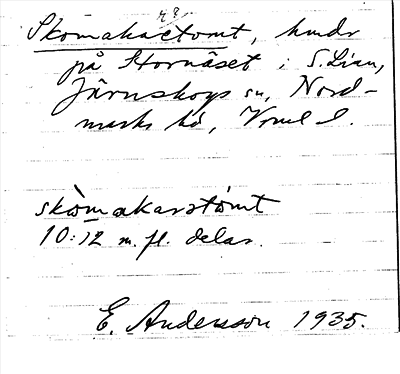 Skomakaretomt, hmdr
på Stornäset i S. Lian,
Järnskogs sn, Nord-
marks hd, Vrml l.
skòmakarstómt
10:12 m. fl. delar.
E. Andersson 1935.